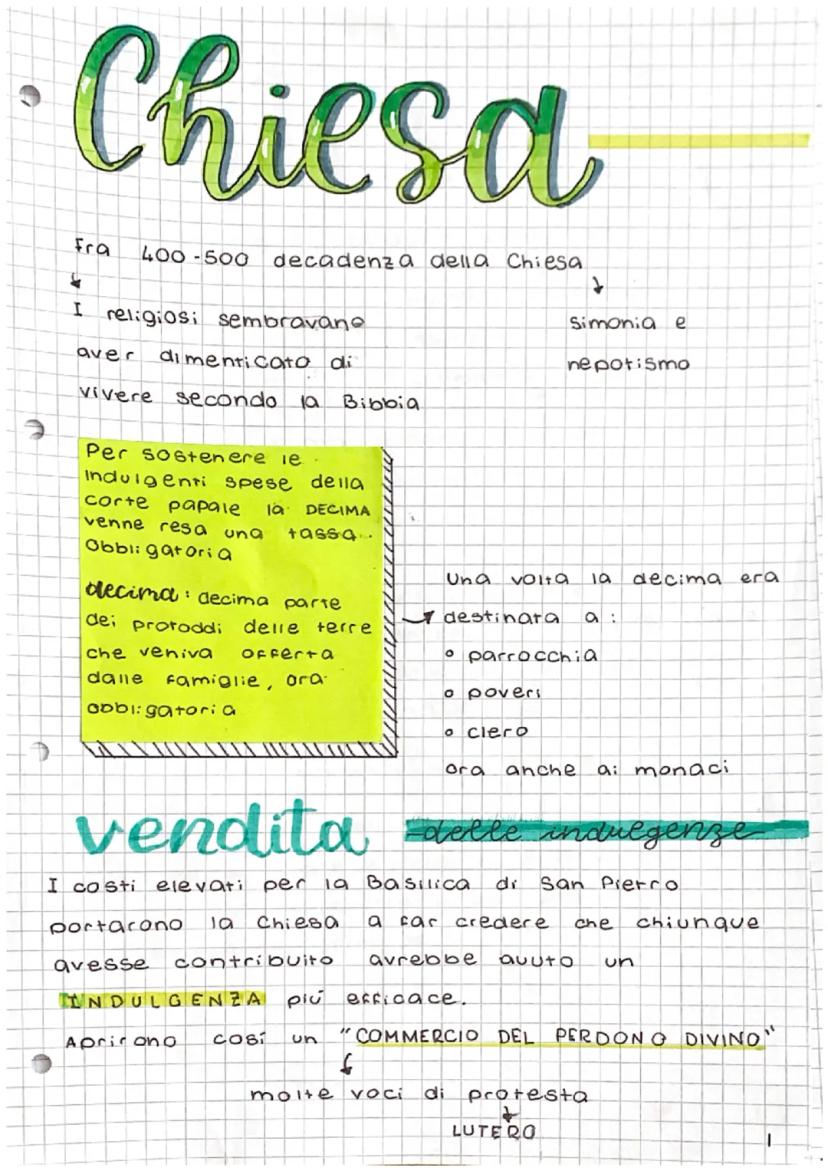 Chiesa
Fra 400-500 decadenza della Chiesa
I religiosi sembravano
aver dimenticato di
vivere secondo la Bibbia
simonia e
nepotismo
Per sostenere le
indulgenti spese della
corte papale la DECIMA
venne resa una tassa
obbligatoria
decima: decima parte
dei protoddi delle terre
che veniva offerta
dalle famiglie, ora
obbligatoria
Una volta la decima era
destinata a:
° parrocchia
° poveri
° clero
ora anche ai monaci
vendita delle indulgenze
I costi elevati per la Basilica di San Pietro
portarono la Chiesa a far credere che chiunque
avesse contribuito avrebbe avuto un
INDULGENZA più efficace.
Aprirono così un "COMMERCIO DEL PERDONO DIVINO"
molte voci di protesta
LUTERO
1